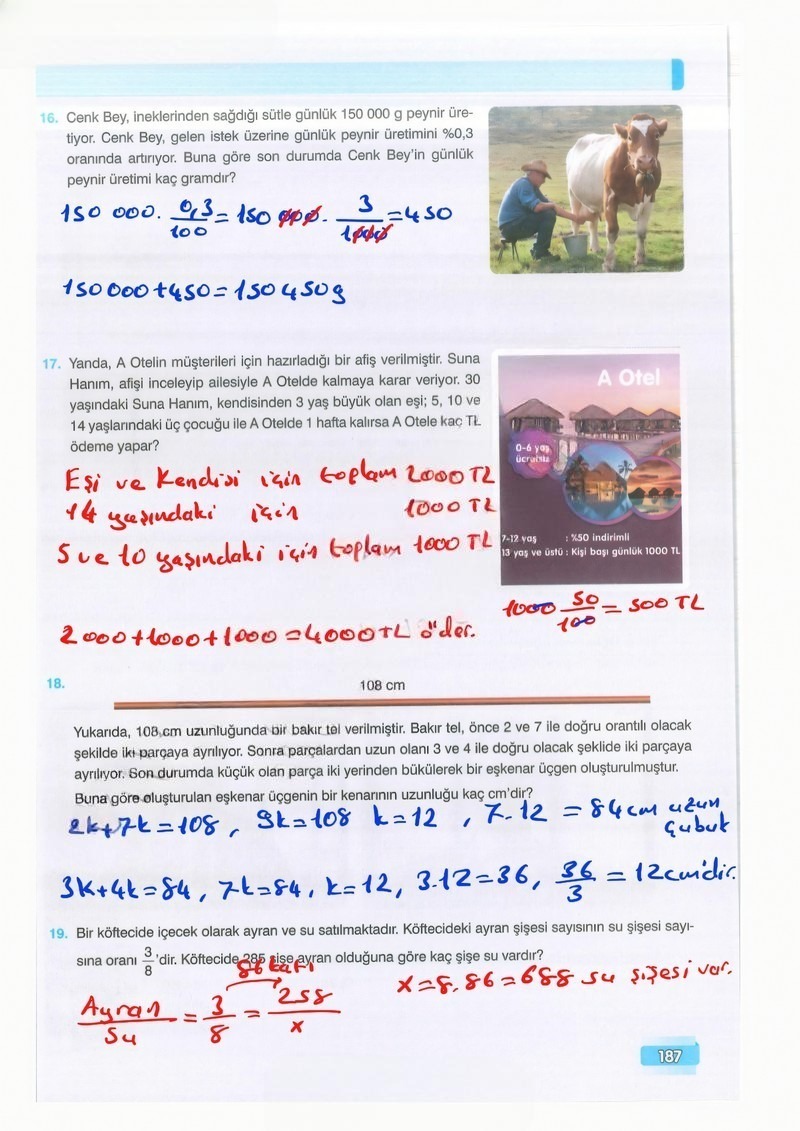 16. Cenk Bey, ineklerinden sağdığı sütle günlük 150 000 g peynir üre-
tiyor. Cenk Bey, gelen istek üzerine günlük peynir üretimini %0,3
oranında artırıyor. Buna göre son durumda Cenk Bey'in günlük
peynir üretimi kaç gramdır?
150 000. 0,3/100 = 150 000. 3/1000 = 450
150000+450=150450g
17. Yanda, A Otelin müşterileri için hazırladığı bir afiş verilmiştir. Suna
Hanım, afişi inceleyip ailesiyle A Otelde kalmaya karar veriyor. 30
yaşındaki Suna Hanım, kendisinden 3 yaş büyük olan eşi; 5, 10 ve
14 yaşlarındaki üç çocuğu ile A Otelde 1 hafta kalırsa A Otele kaç TL
ödeme yapar?
A Otel
0-6 yaş
ücretsiz
7-12 yaş : %50 indirimli
13 yaş ve üstü : Kişi başı günlük 1000 TL
Eşi ve Kendisi için toplam 2000 TL
14 yaşındaki için 1000 TL
5 ve 10 yaşındaki için toplam 1000 TL
1000 50/100 = 500 TL
2000+1000+1000=4000TL öder.
18.
108 cm
Yukarıda, 108 cm uzunluğunda bir bakır tel verilmiştir. Bakır tel, önce 2 ve 7 ile doğru orantılı olacak
şekilde iki parçaya ayrılıyor. Sonra parçalardan uzun olanı 3 ve 4 ile doğru olacak şeklide iki parçaya
ayrılıyor. Son durumda küçük olan parça iki yerinden bükülerek bir eşkenar üçgen oluşturulmuştur.
Buna göre oluşturulan eşkenar üçgenin bir kenarının uzunluğu kaç cm'dir?
2k+7k=108, 9k=108 k=12 , 7.12 = 84cm uzun
çubuk
3k+4k=84, 7k=84, k=12, 3.12=36, 36/3 = 12cm'dir.
19. Bir köftecide içecek olarak ayran ve su satılmaktadır. Köftecideki ayran şişesi sayısının su şişesi sayı-
sına oranı 3/8 'dir. Köftecide 285 şişe ayran olduğuna göre kaç şişe su vardır?
86 katı
Ayran/Su = 3/8 = 258/x
x=8.86=688 su şişesi var.
187